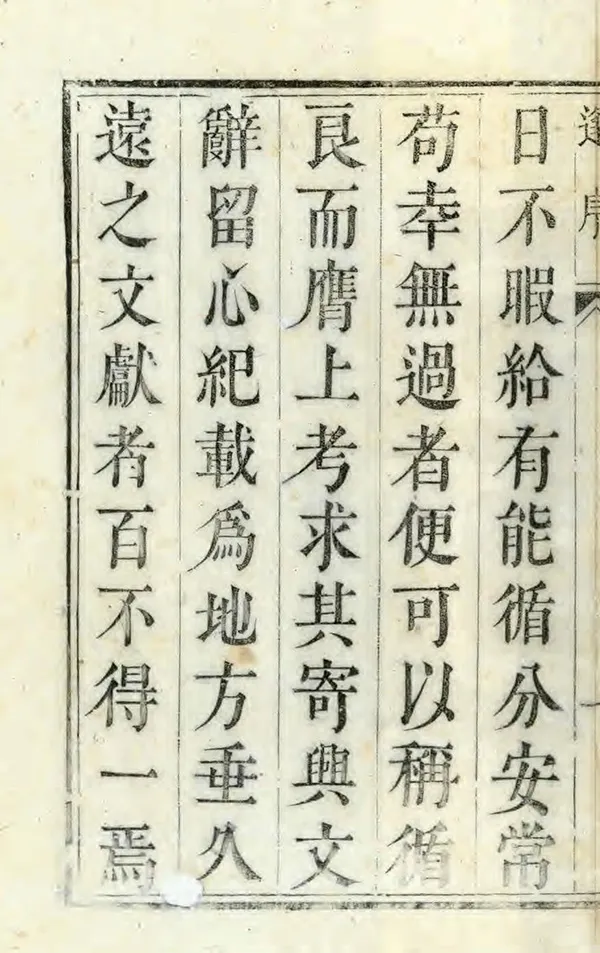 序
日不暇給有能循分安常
苟幸無過者便可以稱循
良而膺上考求其寄興文
辭留心紀載爲地方垂久
遠之文獻者百不得一焉